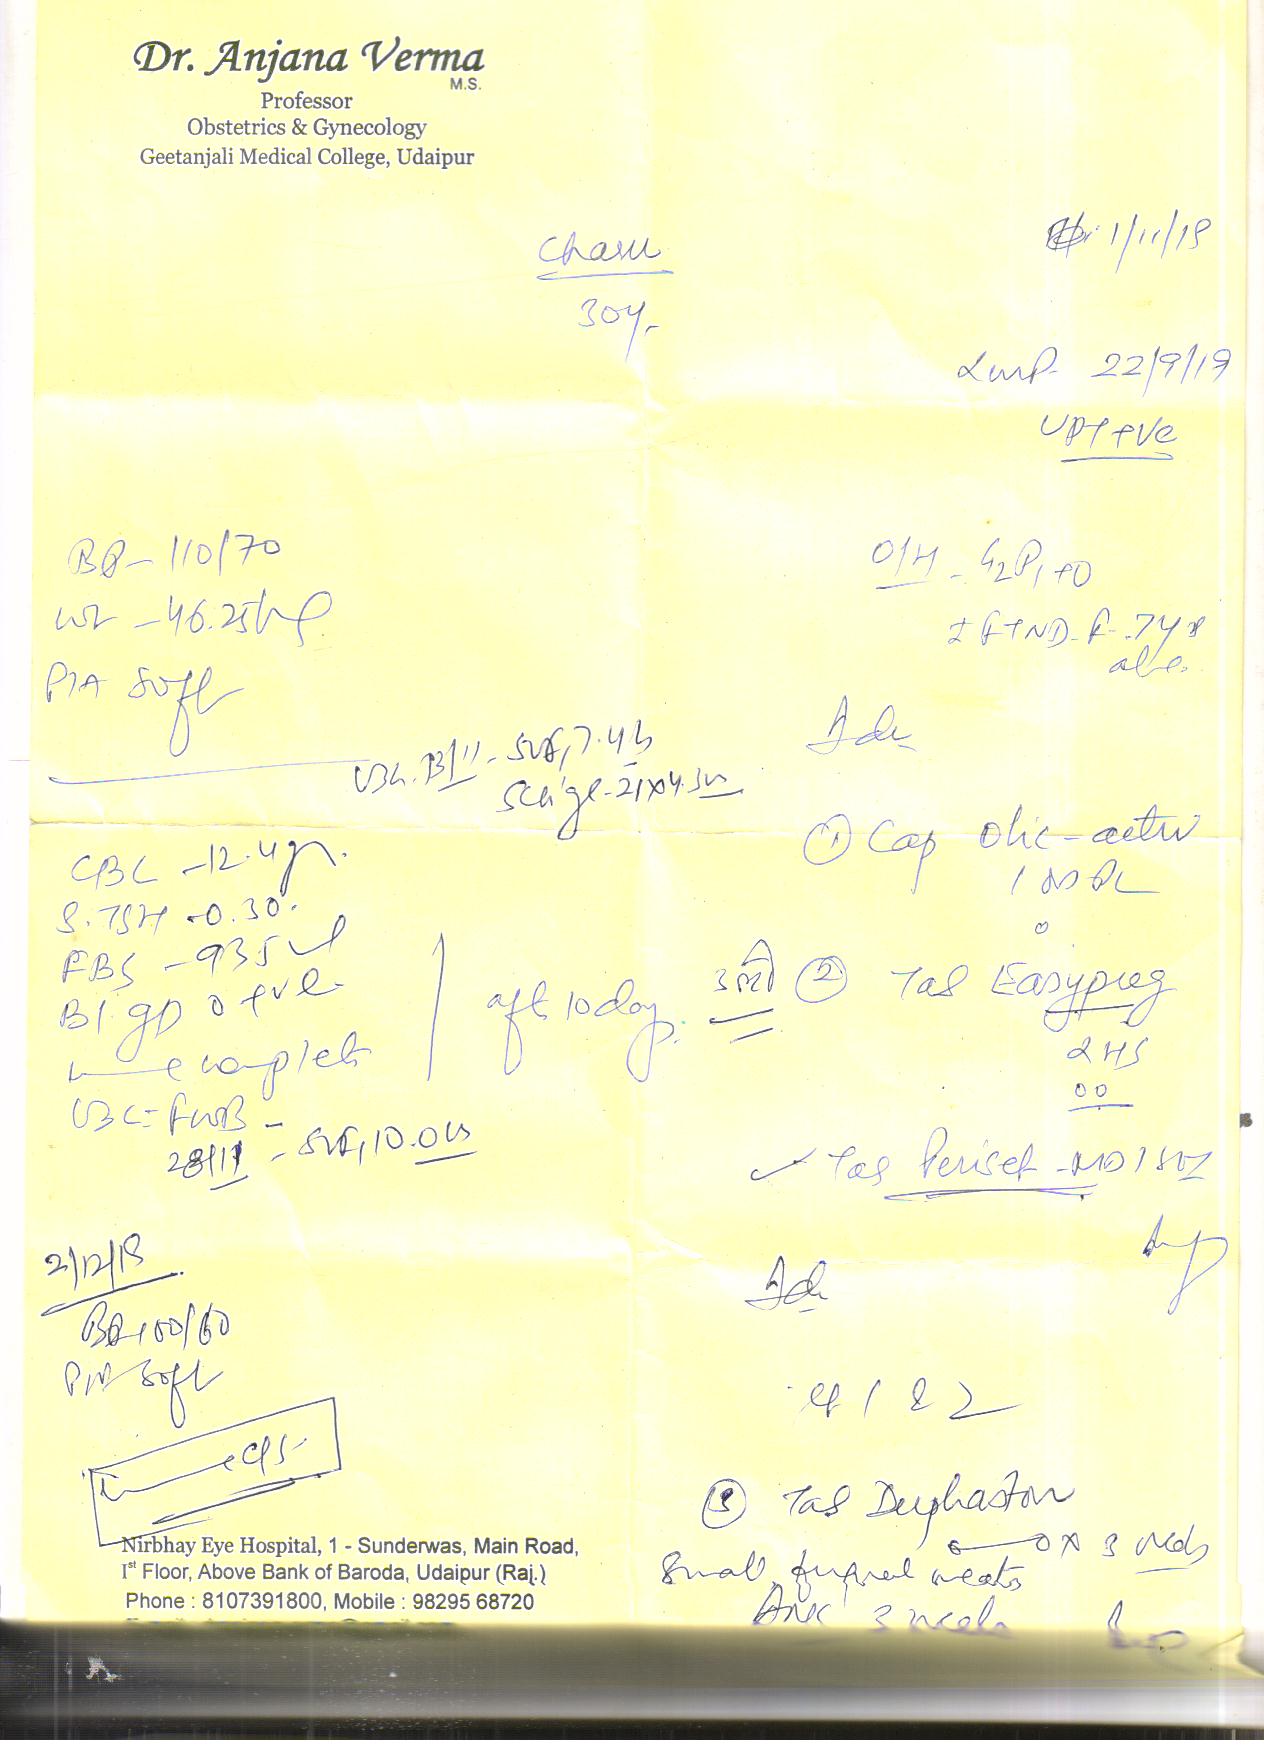 Dr. Anjana Verma
M.S.
Professor
Obstetrics & Gynecology
Geetanjali Medical College, Udaipur
Charu
1/11/19
30y.
LMP- 22/9/19
UPT +ve
BP- 110/70
Wt - 46.25kg
P/A Soft
O/H - G2P1+0
I FTND-F-7Yr
Adv
USG. 13/11 - SLIUF, 7.4
① Cap Olic-activ
1
CBC - 12.4 gm.
S. TSH - 0.30.
FBS - 93
Bl. gp O +ve
Urine complete
USG - FWB -
28/11 - SLIUF, 10.0
after 10 days.
② Tab Easypreg
2 HS
00
✓ Tab Periset - MD 1 SOS
2/12/19
BP 100/60
P/A Soft
Urine C/S
Adv
1 & 2
③ Tab Duphaston
0 x 3 weeks
Small frequent meals
ANC 3 weeks
Nirbhay Eye Hospital, 1 - Sunderwas, Main Road,
Ist Floor, Above Bank of Baroda, Udaipur (Raj.)
Phone : 8107391800, Mobile : 98295 68720